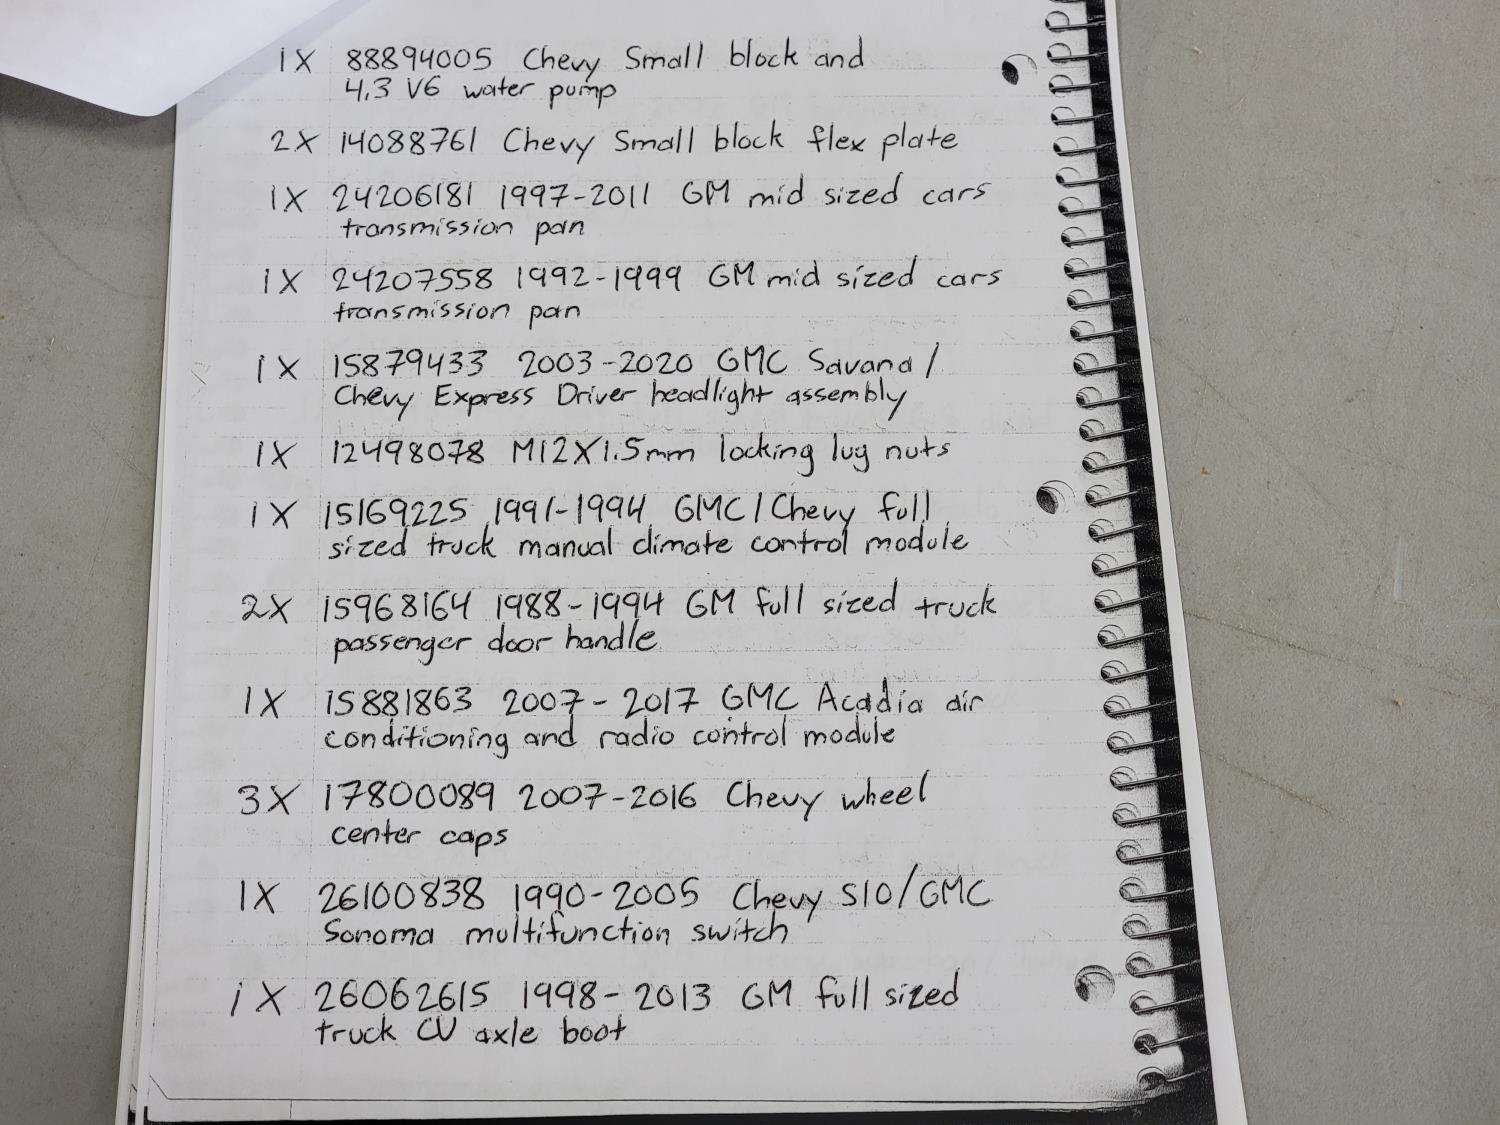 1X 88894005 Chevy Small block and
4.3 V6 water pump
2X 14088761 Chevy Small block flex plate
1X 24206181 1997-2011 GM mid sized cars
transmission pan
1X 24207558 1992-1999 GM mid sized cars
transmission pan
1X 15879433 2003-2020 GMC Savana/
Chevy Express Driver headlight assembly
1X 12498078 M12X1.5mm locking lug nuts
1X 15169225 1991-1994 GMC/Chevy full
sized truck manual climate control module
2X 15968164 1988-1994 GM full sized truck
passenger door handle
1X 15881863 2007-2017 GMC Acadia air
conditioning and radio control module
3X 17800089 2007-2016 Chevy wheel
center caps
1X 26100838 1990-2005 Chevy S10/GMC
Sonoma multifunction switch
1X 26062615 1998-2013 GM full sized
truck CV axle boot